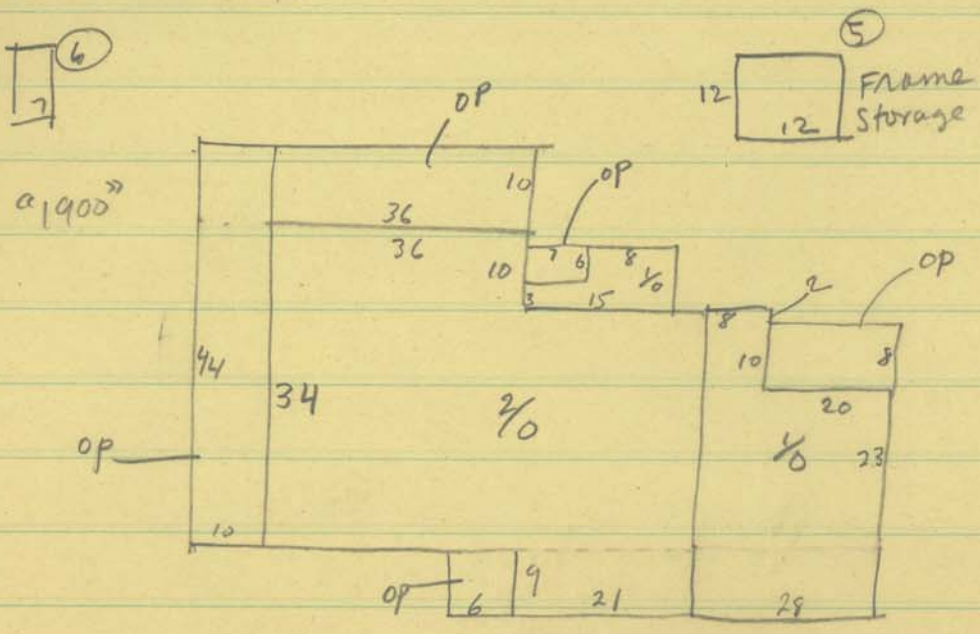 6
7
5
12
12
Frame
Storage
OP
10
OP
a1900"
36
36
10
7 6 8
1/0
3 15
OP
2
8
10
8
20
44
34
2/0
1/0
23
OP
10
OP
6
9
21
28